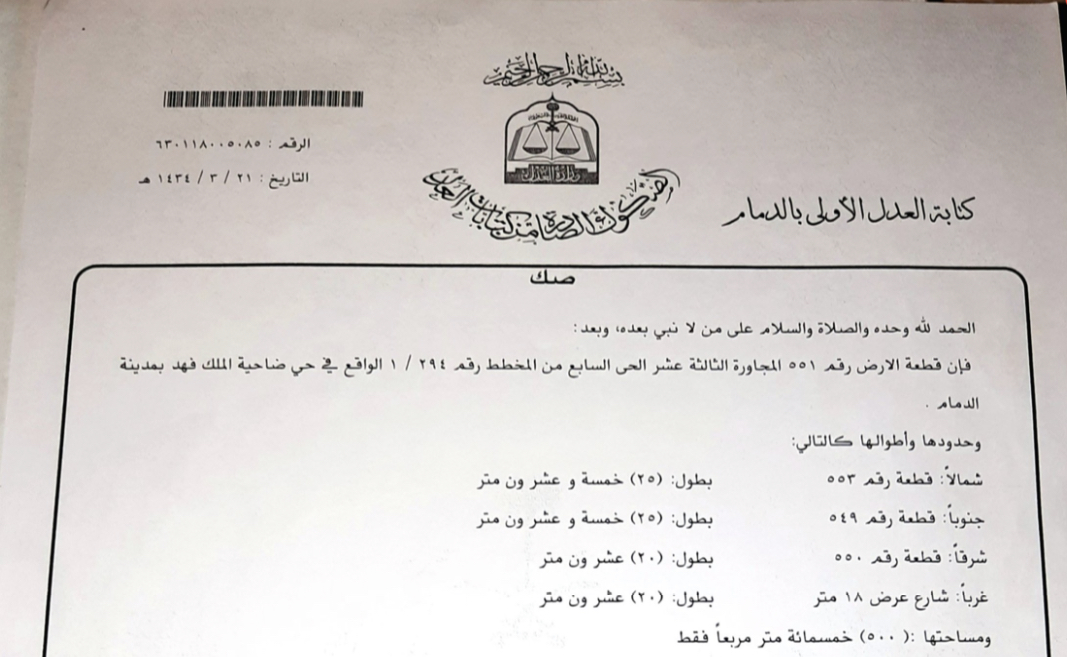 بسم الله الرحمن الرحيم
وزارة العدل
الصكوك الصادرة من كتابات العدل
كتابة العدل الأولى بالدمام
الرقم : ٦٣٠١١٨٠٠٥٠٨٥
التاريخ : ٢١ / ٣ / ١٤٣٤ هـ
صك
الحمد لله وحده والصلاة والسلام على من لا نبي بعده، وبعد:
فإن قطعة الارض رقم ٥٥١ المجاورة الثالثة عشر الحى السابع من المخطط رقم ٢٩٤ / ١ الواقع في حي ضاحية الملك فهد بمدينة
الدمام .
وحدودها وأطوالها كالتالي:
شمالاً: قطعة رقم ٥٥٣ بطول: (٢٥) خمسة و عشر ون متر
جنوباً: قطعة رقم ٥٤٩ بطول: (٢٥) خمسة و عشر ون متر
شرقاً: قطعة رقم ٥٥٠ بطول: (٢٠) عشر ون متر
غرباً: شارع عرض ١٨ متر بطول: (٢٠) عشر ون متر
ومساحتها :( ٥٠٠) خمسمائة متر مربعاً فقط